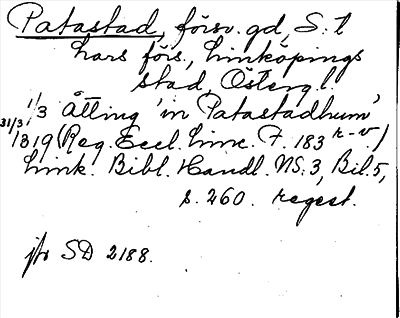 Patastad, försv. gd, S:t
Lars förs., Linköpings
stad, Östergl.
1/3 Åtting 'in Patastadhum'
31/3 1319 (Reg. Eccl. Linc. F. 183 r-v)
Link. Bibl. Handl. NS. 3, Bil. 5,
s. 260. regest.
jfr SD 2188.